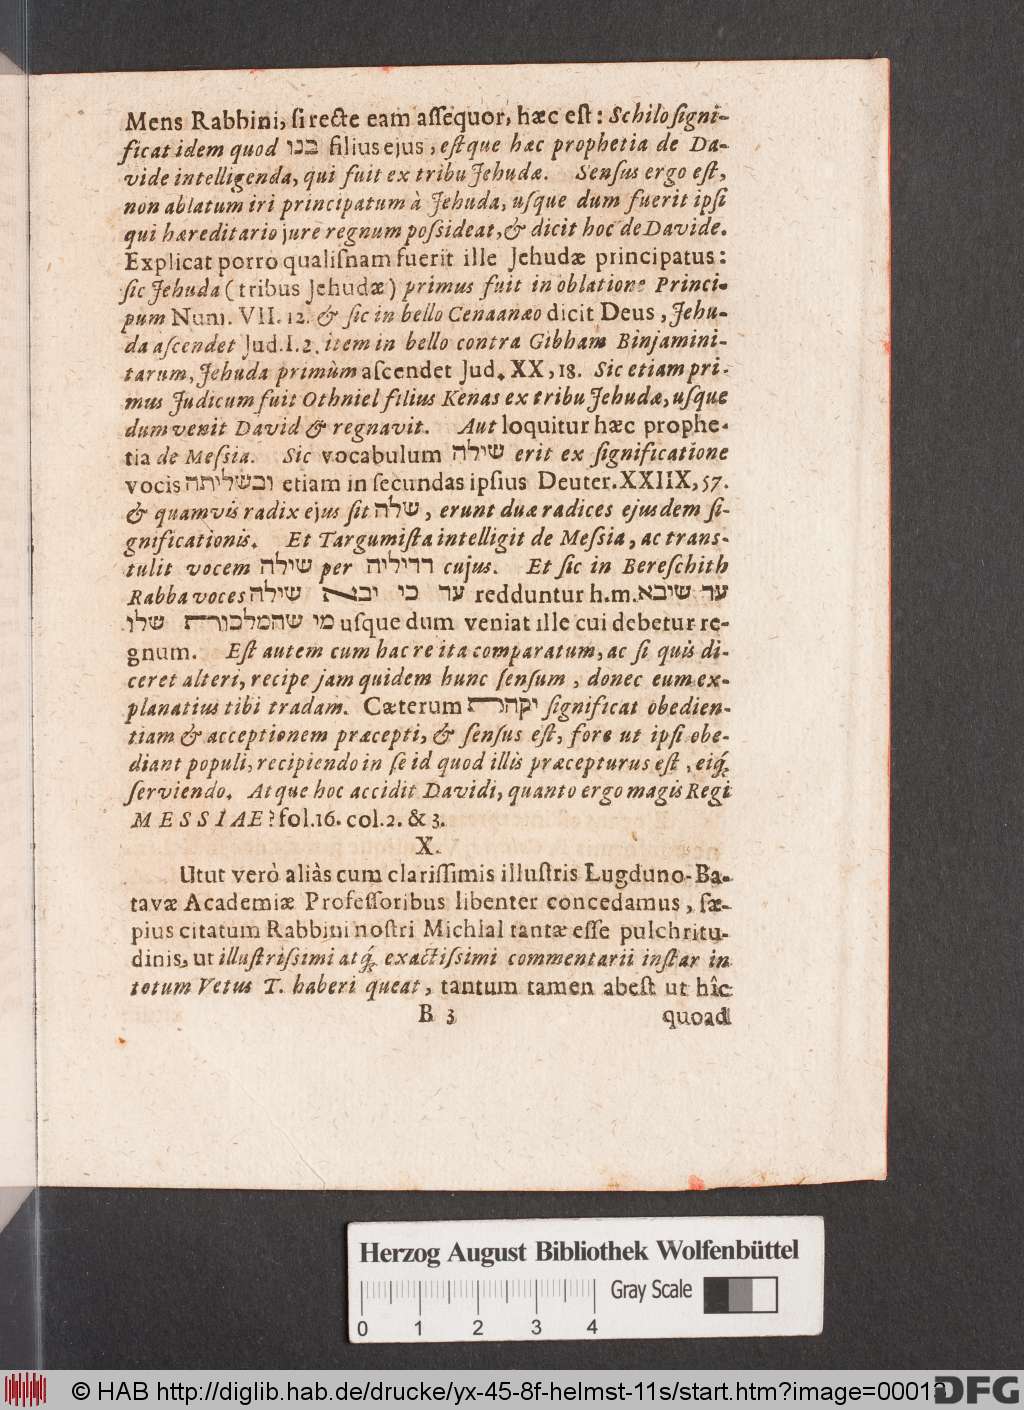 Mens Rabbini, ſi recte eam aſſequor, hæc eſt: Schilo ſigni-
ficat idem quod בנו filius ejus, eſtque hæc prophetia de Da-
vide intelligenda, qui fuit ex tribu Jehudæ. Senſus ergo eſt,
non ablatum iri principatum à Jehuda, uſque dum fuerit ipſi
qui hæreditario jure regnum poſsideat, & dicit hoc de Davide.
Explicat porro qualiſnam fuerit ille Jehudæ principatus:
ſic Jehuda (tribus Jehudæ) primus fuit in oblatione Princi-
pum Num. VII. 12. & ſic in bello Cenaanæo dicit Deus, Jehu-
da aſcendet Jud. I. 2. item in bello contra Gibham Binjamini-
tarum, Jehuda primùm aſcendet Jud. XX, 18. Sic etiam pri-
mus Judicum fuit Othniel filius Kenas ex tribu Jehudæ, uſque
dum venit David & regnavit. Aut loquitur hæc prophe-
tia de Meſsia. Sic vocabulum שילה erit ex ſignificatione
vocis ובשליתה etiam in ſecundas ipſius Deuter. XXIIX, 57.
& quamvis radix ejus ſit שלה, erunt duæ radices ejusdem ſi-
gnificationis. Et Targumiſta intelligit de Meſsia, ac trans-
tulit vocem שילה per דדיליה cujus. Et ſic in Bereſchith
Rabba voces עד כי יבא שילה redduntur h.m. עד שיבא
מי שהמלכות שלו uſque dum veniat ille cui debetur re-
gnum. Eſt autem cum hac re ita comparatum, ac ſi quis di-
ceret alteri, recipe jam quidem hunc ſenſum, donec eum ex-
planatius tibi tradam. Cæterum יקהת ſignificat obedien-
tiam & acceptionem præcepti, & ſenſus eſt, fore ut ipſi obe-
diant populi, recipiendo in ſe id quod illis præcepturus eſt, eiq́;
ſerviendo. Atque hoc accidit Davidi, quanto ergo magis Regi
MESSIAE? fol. 16. col. 2. & 3.
X.
Utut verò aliàs cum clariſſimis illuſtris Lugduno-Ba-
tavæ Academiæ Profeſſoribus libenter concedamus, ſæ-
pius citatum Rabbini noſtri Michlal tantæ eſſe pulchritu-
dinis, ut illuſtriſsimi atq́; exactiſsimi commentarii inſtar in
totum Vetus T. haberi queat, tantum tamen abeſt ut hîc
B 3 quoad
Herzog August Bibliothek Wolfenbüttel
Gray Scale
0 1 2 3 4
© HAB http://diglib.hab.de/drucke/yx-45-8f-helmst-11s/start.htm?image=00013
DFG